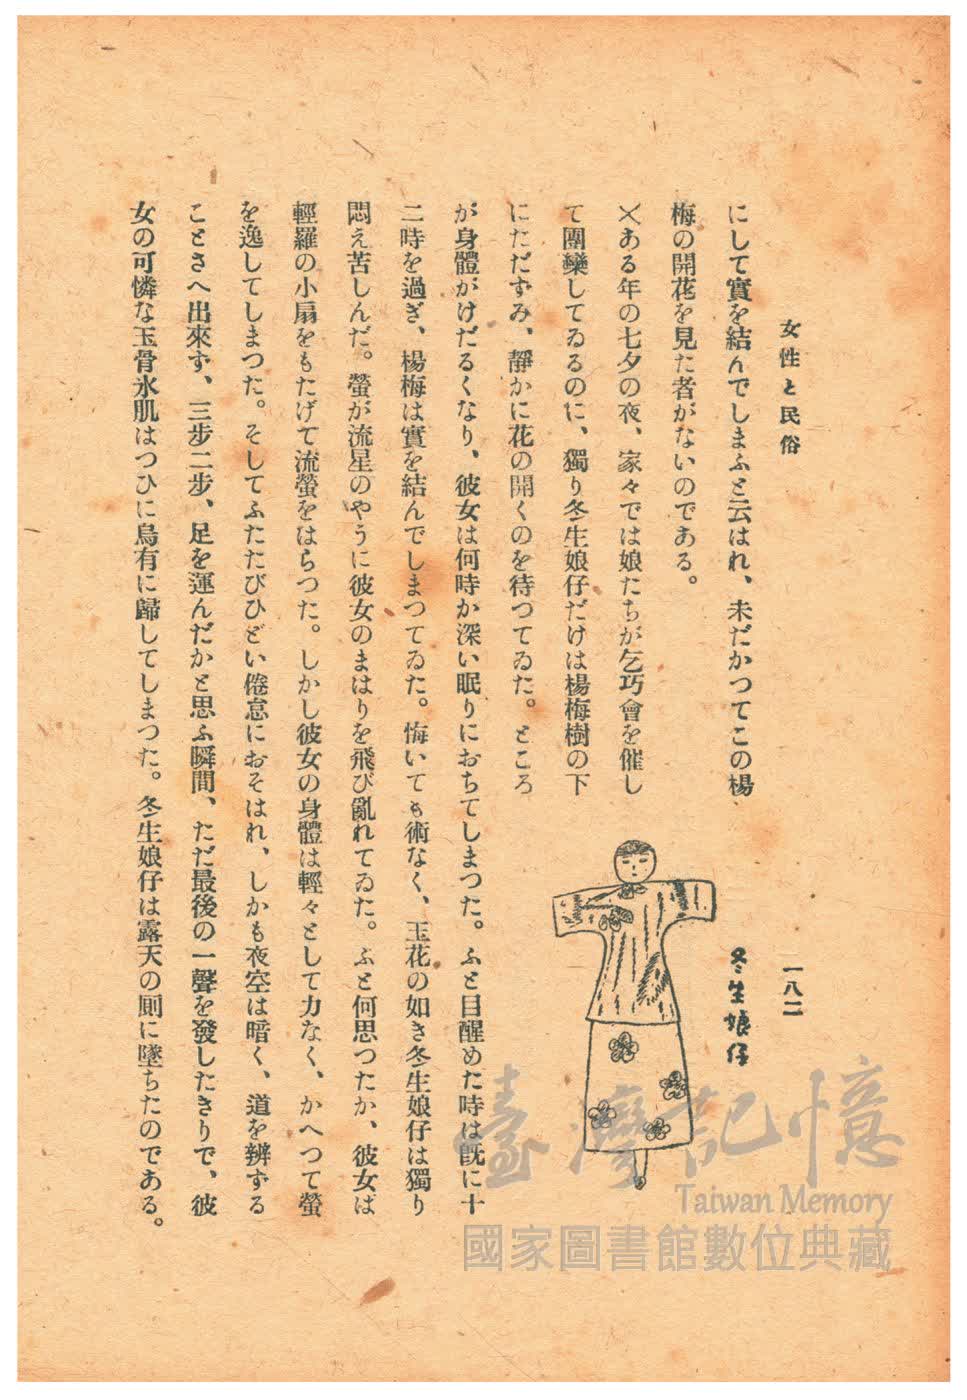 女性と民俗
一八二
にして實を結んでしまふと云はれ、未だかつてこの楊
梅の開花を見た者がないのである。
×ある年の七夕の夜、家々では娘たちが乞巧會を催し
て團欒してゐるのに、獨り冬生娘仔だけは楊梅樹の下
にただずみ、靜かに花の開くのを待つてゐた。ところ
が身體がけだるくなり、彼女は何時か深い眠りにおちてしまつた。ふと目醒めた時は旣に十
二時を過ぎ、楊梅は實を結んでしまつてゐた。悔いても術なく、玉花の如き冬生娘仔は獨り
悶え苦しんだ。螢が流星のやうに彼女のまはりを飛び亂れてゐた。ふと何思つたか、彼女は
輕羅の小扇をもたげて流螢をはらつた。しかし彼女の身體は輕々として力なく、かへつて螢
を逸してしまつた。そしてふたたびひどい倦怠におそはれ、しかも夜空は暗く、道を辨ずる
ことさへ出來ず、三步二步、足を運んだかと思ふ瞬間、ただ最後の一聲を發したきりで、彼
女の可憐な玉骨氷肌はつひに烏有に歸してしまつた。冬生娘仔は露天の厠に墜ちたのである。
冬生娘仔
臺灣記憶
Taiwan Memory
國家圖書館數位典藏